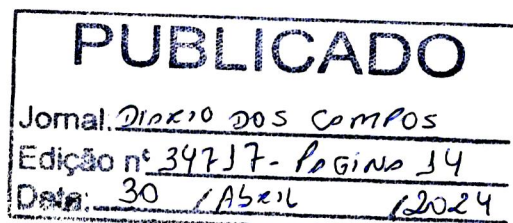 PUBLICADO
Jornal: DIARIO DOS CAMPOS
Edição nº 34717 - PAGINA 14
Data: 30 / ABRIL / 2024